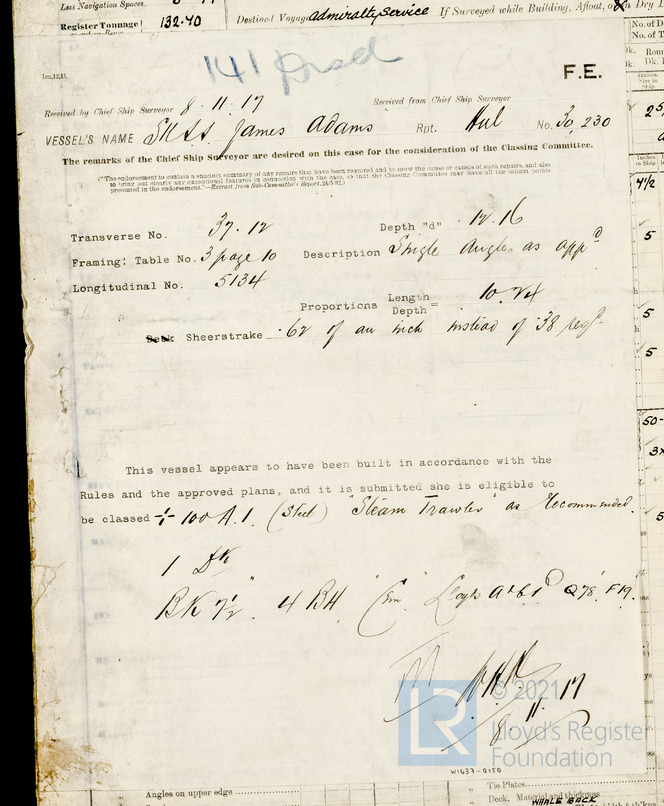 Less Navigation Spaces
Register Tonnage 132.40
Destined Voyage Admiralty Service If Surveyed while Building, Afloat, or in Dry
141
1m,12,15. F.E.
Received by Chief Ship Surveyor 8.11.17 Received from Chief Ship Surveyor
VESSEL'S NAME James Adams Rpt. Hul No. 30,230
The remarks of the Chief Ship Surveyor are desired on this case for the consideration of the Classing Committee.
("The endorsement to contain a succinct summary of any repairs that have been required and to show the cause or causes of such repairs, and also
to bring out clearly any exceptional features in connection with the case, so that the Classing Committee may have all the salient points
presented in the endorsement."—Extract from Sub-Committee's Report, 24/5/92.)
Transverse No. 37.12 Depth "d" 12.16
Framing: Table No. 3 page 10 Description Single Angles as appd
Longitudinal No. 5134
Proportions Length/Depth = 10.24
Deck Sheerstrake .62 of an inch instead of .38 reqd.
This vessel appears to have been built in accordance with the
Rules and the approved plans, and it is submitted she is eligible to
be classed 100 A.1. (Steel) "Steam Trawler" as recommended.
1 Dk
BK 7½" 4 BH Cem Lloyds A & CP Q 78' F 19'.
8.11.17
© 2021
LR
Lloyd's Register
Foundation
W1637-0150
Angles on upper edge
Tie Plates
Deck. Material and thickness
WHALE BACK